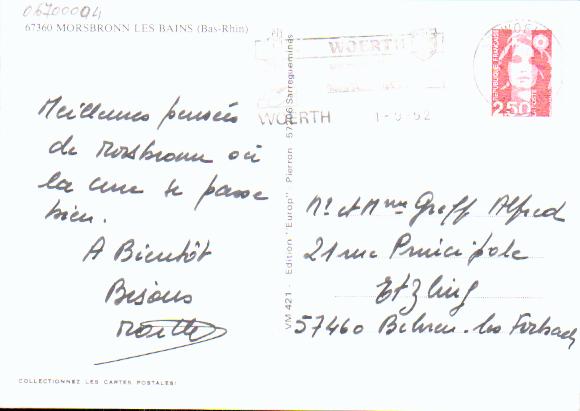 06700004
67360 MORSBRONN LES BAINS (Bas-Rhin)
Meilleures pensées
de Morsbronn où
la cure se passe
bien.
A Bientôt
Bisous
VM 421 - Edition "Europ" Pierron 57206 Sarreguemines
WOERTH
WOERTH
REPUBLIQUE FRANÇAISE
2,50
Mr et Mme Greff Alfred
21 rue Principale
Etzling
57460 Behren-les Forbach
COLLECTIONNEZ LES CARTES POSTALES!